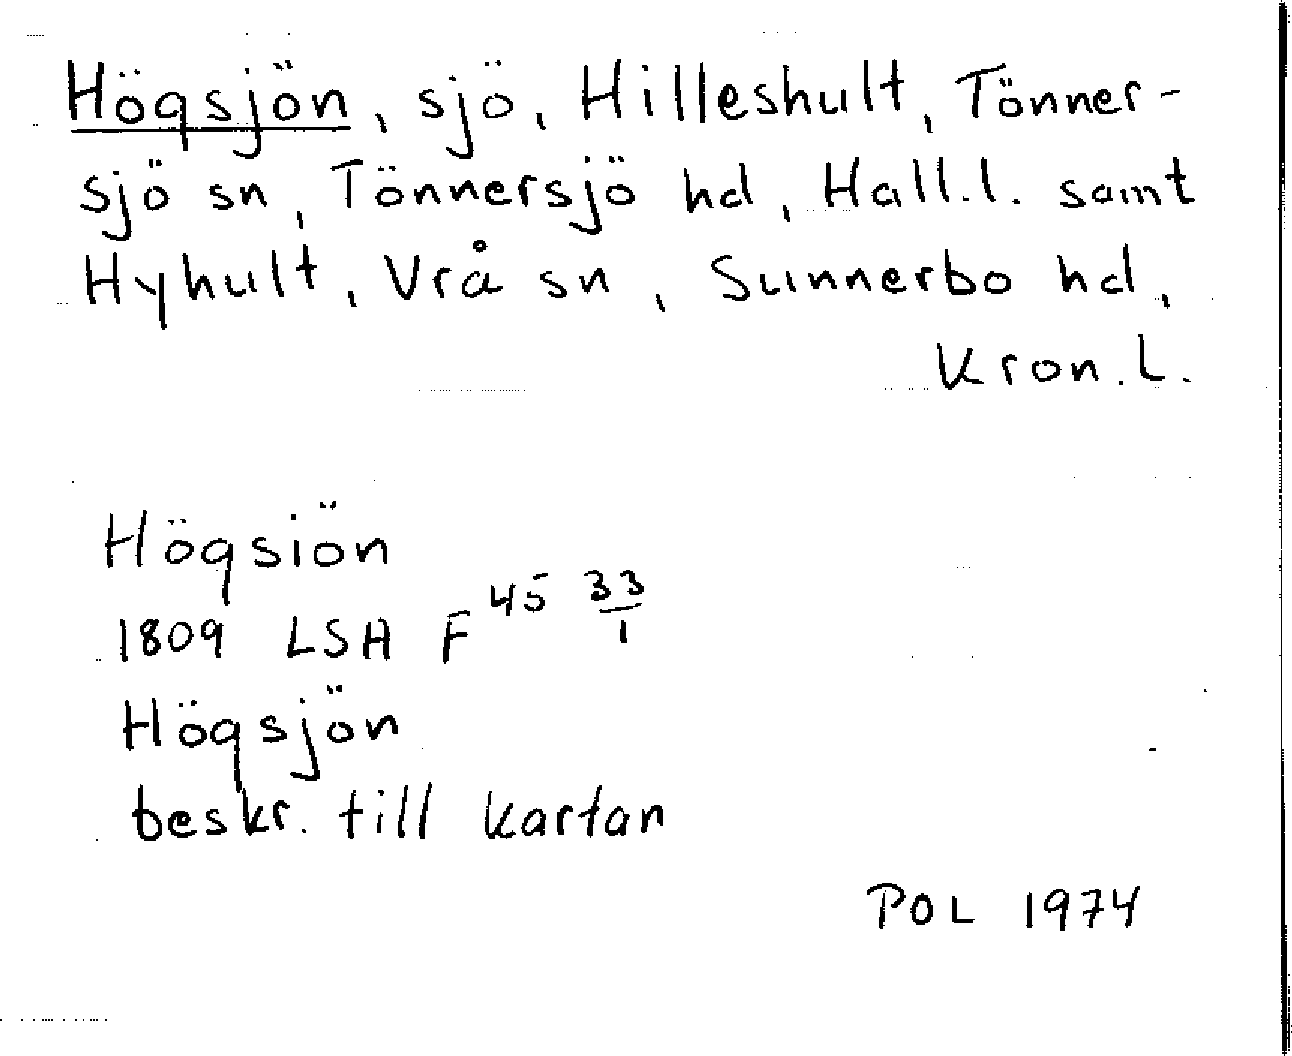 Högsjön, sjö, Hilleshult, Tönner-
sjö sn, Tönnersjö hd, Hall.l. samt
Hyhult, Vrå sn, Sunnerbo hd,
Kron.l.
Högsiön
1809 LSA F 45 33/1
Högsjön
beskr. till kartan
POL 1974